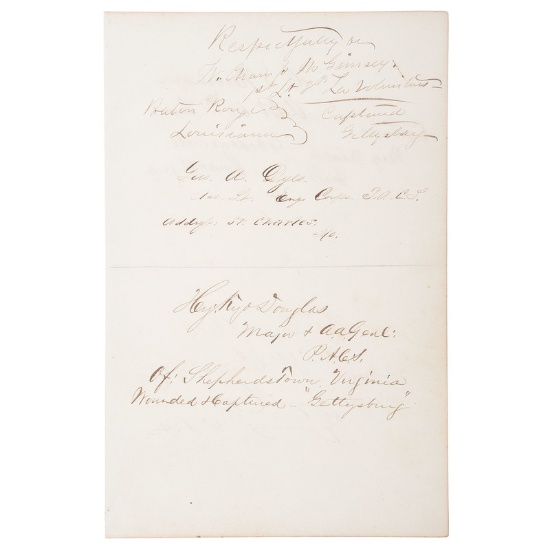 Respectfully
McGimsey
1st Lt. 7th La Volunteers
Baton Rouge
Louisiana
Captured
Gettysburg
Geo. A.
1st Lt. Engr. Corps P.A.C.S.
Address St. Charles
Mo.
Hy: Kyd Douglas
Major & A.A. Genl:
P.A.C.S.
Of: Shepherdstown Virginia
Wounded & Captured - "Gettysburg"